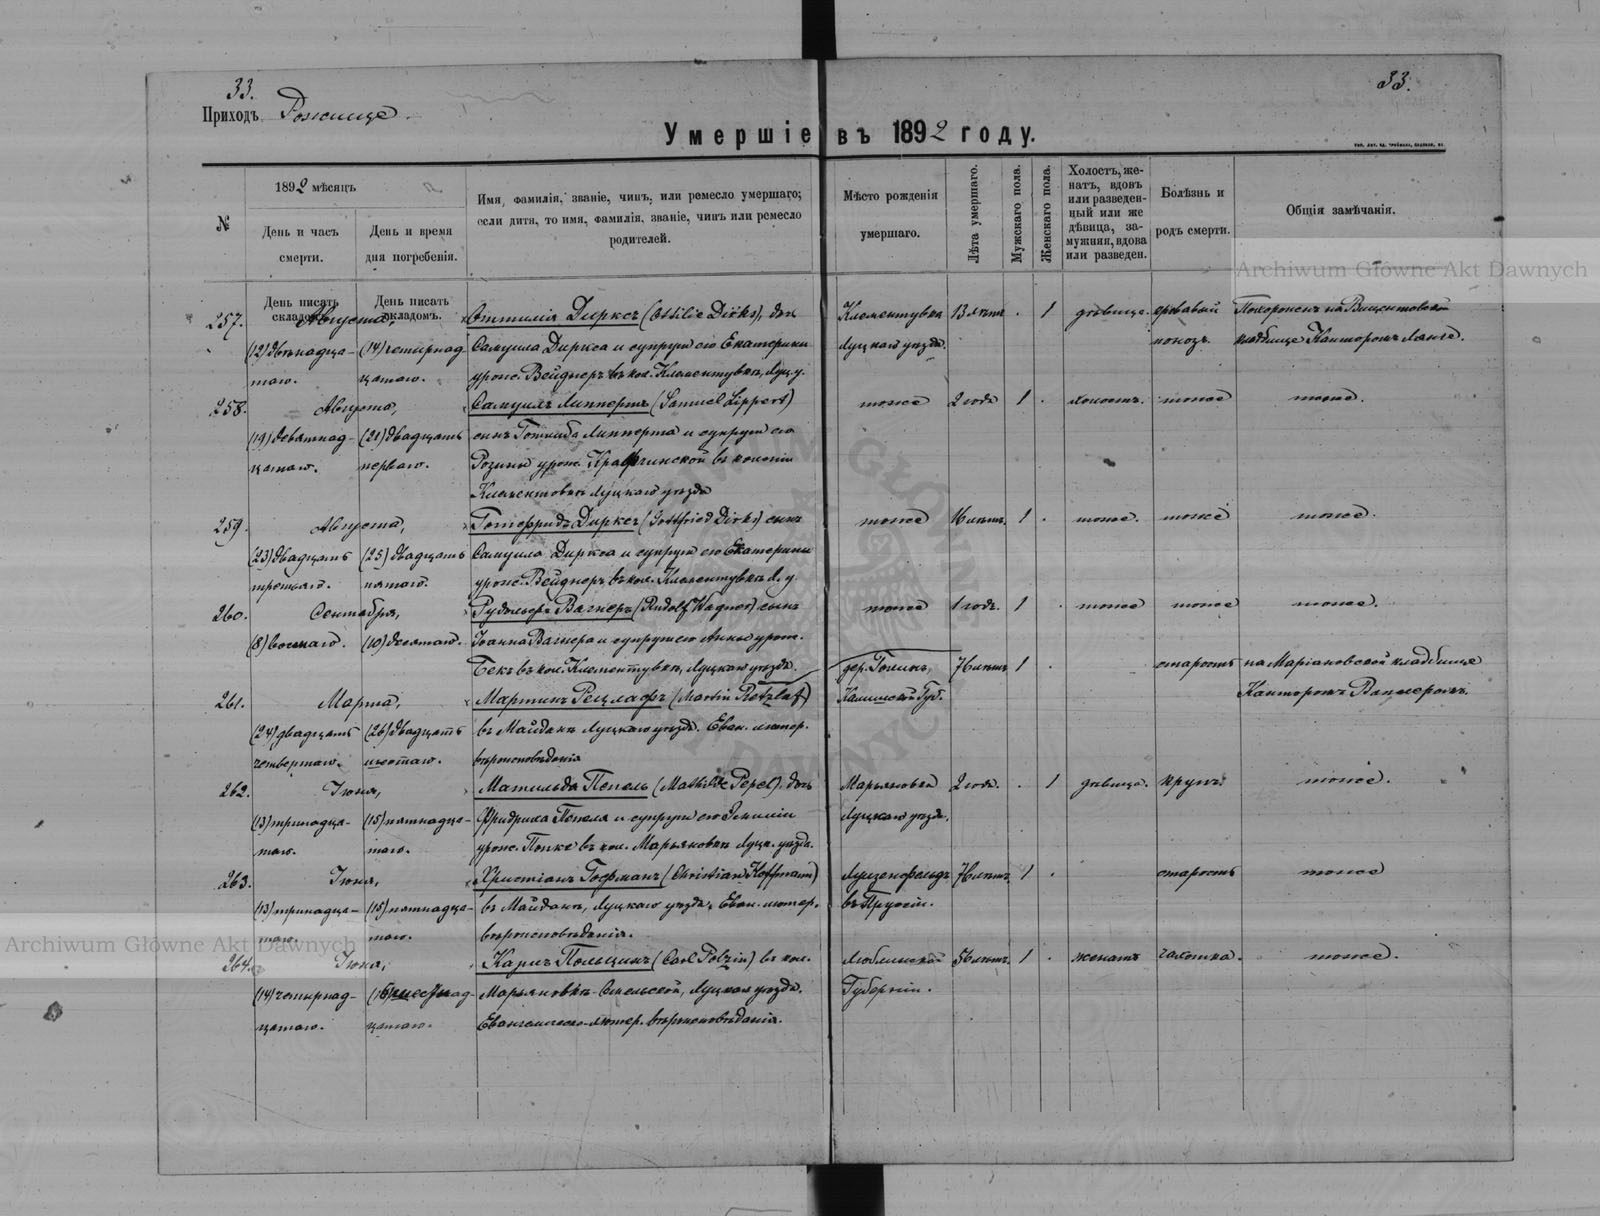 33.
33.
Приходъ Рожище.
Умершіе въ 1892 году.
№
1892 мѣсяцъ
День и часъ смерти.
День и время дня погребенія.
Имя, фамилія, званіе, чинъ, или ремесло умершаго;
если дитя, то имя, фамилія, званіе, чинъ или ремесло
родителей.
Мѣсто рожденія
умершаго.
Лѣта умершаго.
Мужскаго пола.
Женскаго пола.
Холостъ, же-
натъ, вдовъ
или разведен-
цый или же
дѣвица, за-
мужняя, вдова
или разведен.
Болѣзнь и
родъ смерти.
Общія замѣчанія.
Archiwum Główne Akt Dawnych
День писать складомъ.
День писать складомъ.
257. Августа, Оттилія Дирксъ (Ottilie Dirks), дочь Клементувка 13 лѣтъ . 1 дѣвица. кровавый Похороненъ на
(12) двѣнадца- (14) четырнад- Самуила Диркса и супруги его Екатерины Луцкаго уѣзда. поносъ. кладбище Канторомъ Лянге.
таго. цатаго. урожд. Вейднеръ въ кол. Клементувкѣ, Луц. у.
258. Августа, Самуилъ Липпертъ (Samuel Lippert) тоже 2 года 1 . холостъ. тоже тоже.
(19) девятнад- (21) двадцать сынъ Готлиба Липперта и супруги его
цатаго. перваго. Розины урож. въ колоніи
Клементовкѣ Луцкаго уѣзда
259. Августа, Готфридъ Дирксъ (Gottfried Dirks) сынъ тоже 16 лѣтъ. 1 . тоже. тоже тоже.
(23) двадцать (25) двадцать Самуила Диркса и супруги его Екатерины
третьяго. пятаго. урож. Вейднеръ въ кол. Клементувкѣ Л. у.
260. Сентября, Рудольфъ Вагнеръ (Rudolf Wagner) сынъ тоже 1 годъ. 1 . тоже тоже тоже.
(8) восьмаго. (10) десятаго. Іоанна Вагнера и супруги его Анны урож.
Бекъ въ кол. Клементувкѣ, Луцкаго уѣзда. дер. Голинъ, 76 лѣтъ 1 . старость на Маріановской кладбище
261. Марта, Мартинъ Рецлафъ (Martin Retzlaf) Калишской Губ. Канторомъ
(24) двадцать (26) двадцать въ Майданѣ Луцкаго уѣзда. Еван. лютер.
четвертаго. шестаго. вѣроисповѣданія
262. Іюня, Матильда Пепель (Mathilde Pepel). дочь Марьяновка 2 года. . 1 дѣвица. крупъ. тоже.
(13) тринадца- (15) пятнадца- Фридриха Пепеля и супруги его Эмиліи Луцкаго уѣзда.
таго. таго. урож. Попке въ кол. Марьяновкѣ Луцк. уѣзда.
263. Іюня, Христіанъ Гофманъ (Christian Hoffmann) 76 лѣтъ. 1 . старость тоже
(13) тринадца- (15) пятнадца- въ Майданѣ, Луцкаго уѣзда. Еван. лютер. въ Пруссіи.
таго. таго. вѣроисповѣданія.
Archiwum Główne Akt Dawnych
264. Іюня, Карлъ Польцинъ (Carl Polzin) въ кол. Люблинской 56 лѣтъ. 1 . женатъ чахотка. тоже.
(14) четырнад- (16) шестнад- Марьяновкѣ-Смельской, Луцкаго уѣзда. Губерніи.
цатаго. цатаго. Евангелическо-лютер. вѣроисповѣданія.